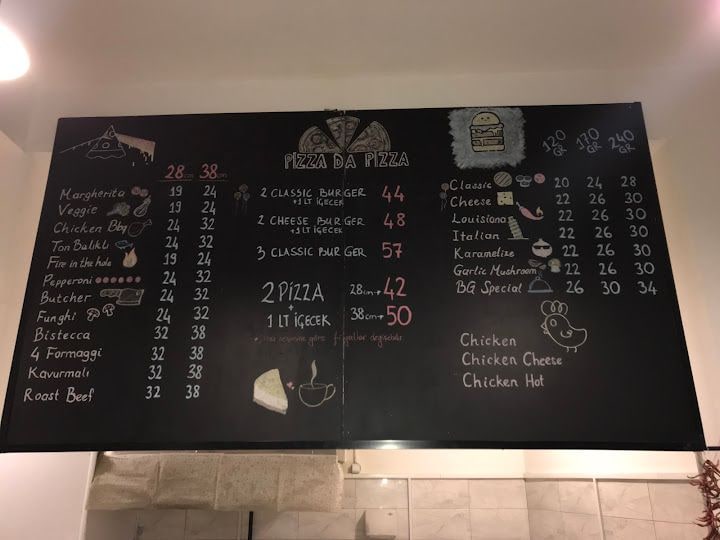 PIZZA DA PIZZA
28cm 38cm
Margherita 19 24
Veggie 19 24
Chicken Bbq 24 32
Ton Balıklı 24 32
Fire in the hole 19 24
Pepperoni 24 32
Butcher 24 32
Funghi 24 32
Bistecca 32 38
4 Formaggi 32 38
Kavurmalı 32 38
Roast Beef 32 38
2 CLASSIC BURGER 44
+1 LT İÇECEK
2 CHEESE BURGER 48
+1 LT İÇECEK
3 CLASSIC BURGER 57
2 PİZZA
+
1 LT İÇECEK
28cm→ 42
38cm→ 50
göre fiyatlar değişebilir
120 GR 170 GR 240 GR
Classic 20 24 28
Cheese 22 26 30
Louisiana 22 26 30
Italian 22 26 30
Karamelize 22 26 30
Garlic Mushroom 22 26 30
BG Special 26 30 34
Chicken
Chicken Cheese
Chicken Hot